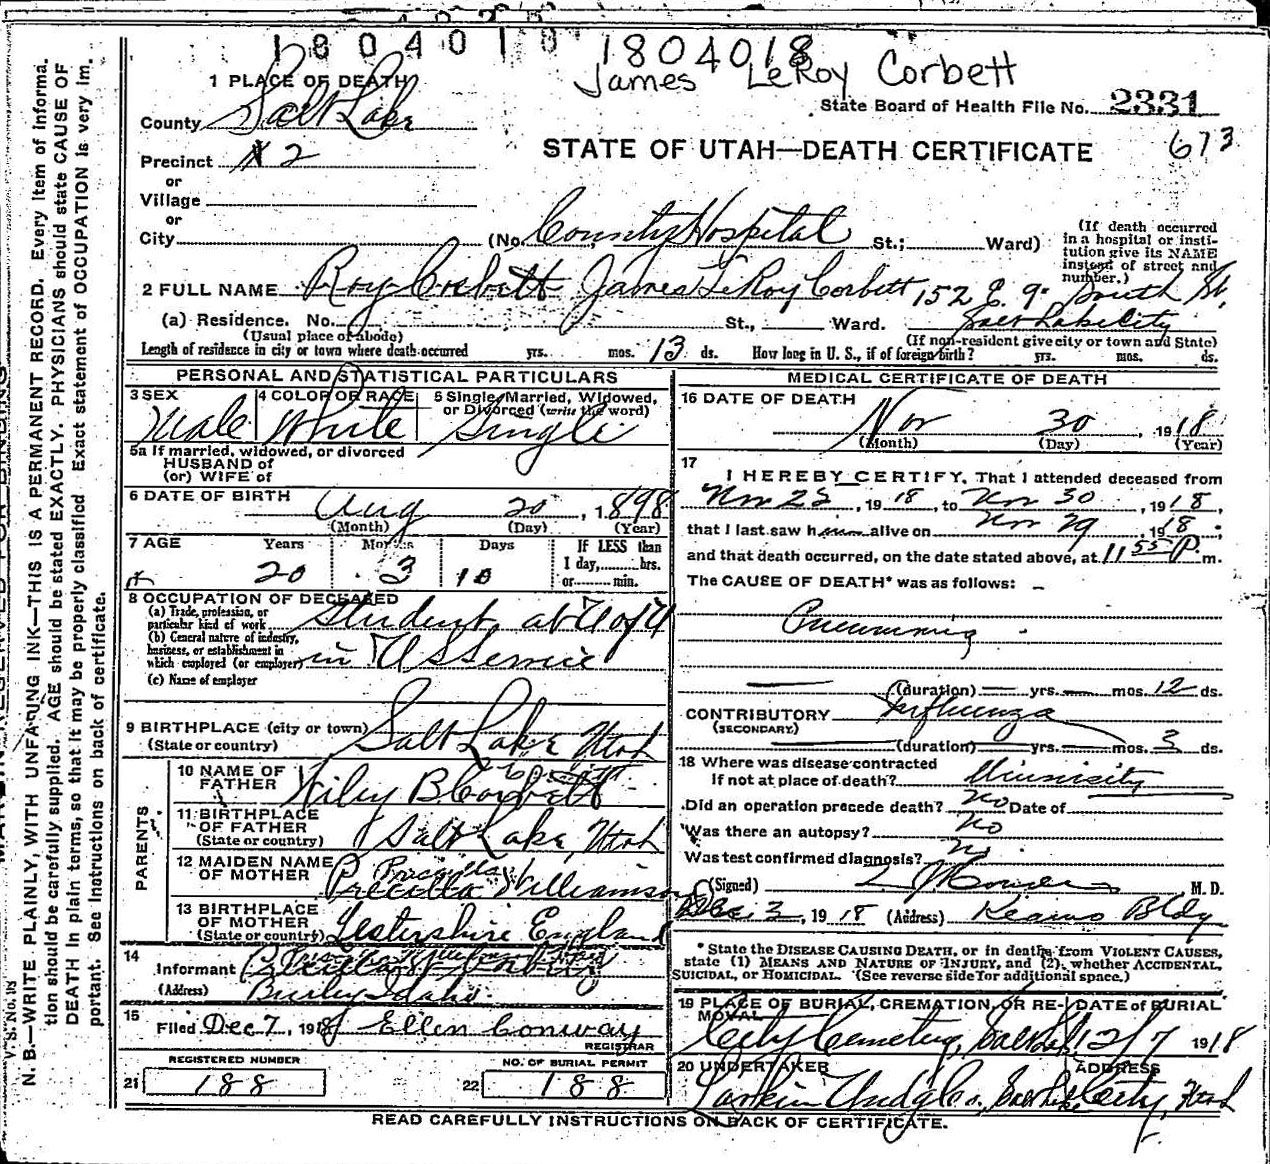 1804018 1804018
James LeRoy Corbett
State Board of Health File No. 2331
673
STATE OF UTAH—DEATH CERTIFICATE
1 PLACE OF DEATH
County Salt Lake
Precinct # 2
or
Village
or
City (No. County Hospital St.; Ward)
(If death occurred in a hospital or institution give its NAME instead of street and number.)
2 FULL NAME Roy Corbett James LeRoy Corbett 152 E. 9" South St.
(a) Residence. No. St., Ward. Salt Lake City
(Usual place of abode) (If non-resident give city or town and State)
Length of residence in city or town where death occurred yrs. mos. 13 ds. How long in U. S., if of foreign birth? yrs. mos. ds.
PERSONAL AND STATISTICAL PARTICULARS
3 SEX Male
4 COLOR OR RACE White
5 Single, Married, Widowed, or Divorced (write the word) Single
5a If married, widowed, or divorced
HUSBAND of
(or) WIFE of
6 DATE OF BIRTH Aug 20, 1898
(Month) (Day) (Year)
7 AGE Years Months Days If LESS than
20 3 10 1 day, hrs.
or min.
8 OCCUPATION OF DECEASED
(a) Trade, profession, or particular kind of work Student at U of U
(b) General nature of industry, business, or establishment in which employed (or employer) in U S Service
(c) Name of employer
9 BIRTHPLACE (city or town) Salt Lake Utah
(State or country)
PARENTS
10 NAME OF FATHER Wiley B Corbett
11 BIRTHPLACE OF FATHER Salt Lake, Utah
(State or country)
12 MAIDEN NAME OF MOTHER Precilla Williamson
13 BIRTHPLACE OF MOTHER Lestershire England
(State or country)
14
Informant
(Address) Burley Idaho
15
Filed Dec 7, 1918 J Ellen Conway
REGISTRAR
REGISTERED NUMBER NO. OF BURIAL PERMIT
21 188 22 188
MEDICAL CERTIFICATE OF DEATH
16 DATE OF DEATH
Nov 30, 1918
(Month) (Day) (Year)
17
I HEREBY CERTIFY, That I attended deceased from
Nov 25, 1918, to Nov 30, 1918,
that I last saw him alive on Nov 29 1918;
and that death occurred, on the date stated above, at 11 55 P. m.
The CAUSE OF DEATH* was as follows:
Pneumonia
(duration) yrs. mos. 12 ds.
CONTRIBUTORY Influenza
(SECONDARY)
(duration) yrs. mos. 3 ds.
18 Where was disease contracted
If not at place of death? University
Did an operation precede death? no Date of
Was there an autopsy? no
Was test confirmed diagnosis? no
(Signed) M. D.
Dec. 3, 1918 (Address) Kearns Bldg
* State the DISEASE CAUSING DEATH, or in deaths from VIOLENT CAUSES,
state (1) MEANS AND NATURE OF INJURY, and (2), whether ACCIDENTAL,
SUICIDAL, or HOMICIDAL. (See reverse side for additional space.)
19 PLACE OF BURIAL, CREMATION, OR REMOVAL DATE of BURIAL
City Cemetery, Salt Lake 12/7 1918
20 UNDERTAKER ADDRESS
Salt Lake City, Utah
READ CAREFULLY INSTRUCTIONS ON BACK OF CERTIFICATE.
V. S. No.
N. B.—WRITE PLAINLY, WITH UNFADING INK—THIS IS A PERMANENT RECORD. Every item of informa-
tion should be carefully supplied. AGE should be stated EXACTLY. PHYSICIANS should state CAUSE OF
DEATH in plain terms, so that it may be properly classified. Exact statement of OCCUPATION is very im-
portant. See instructions on back of certificate.